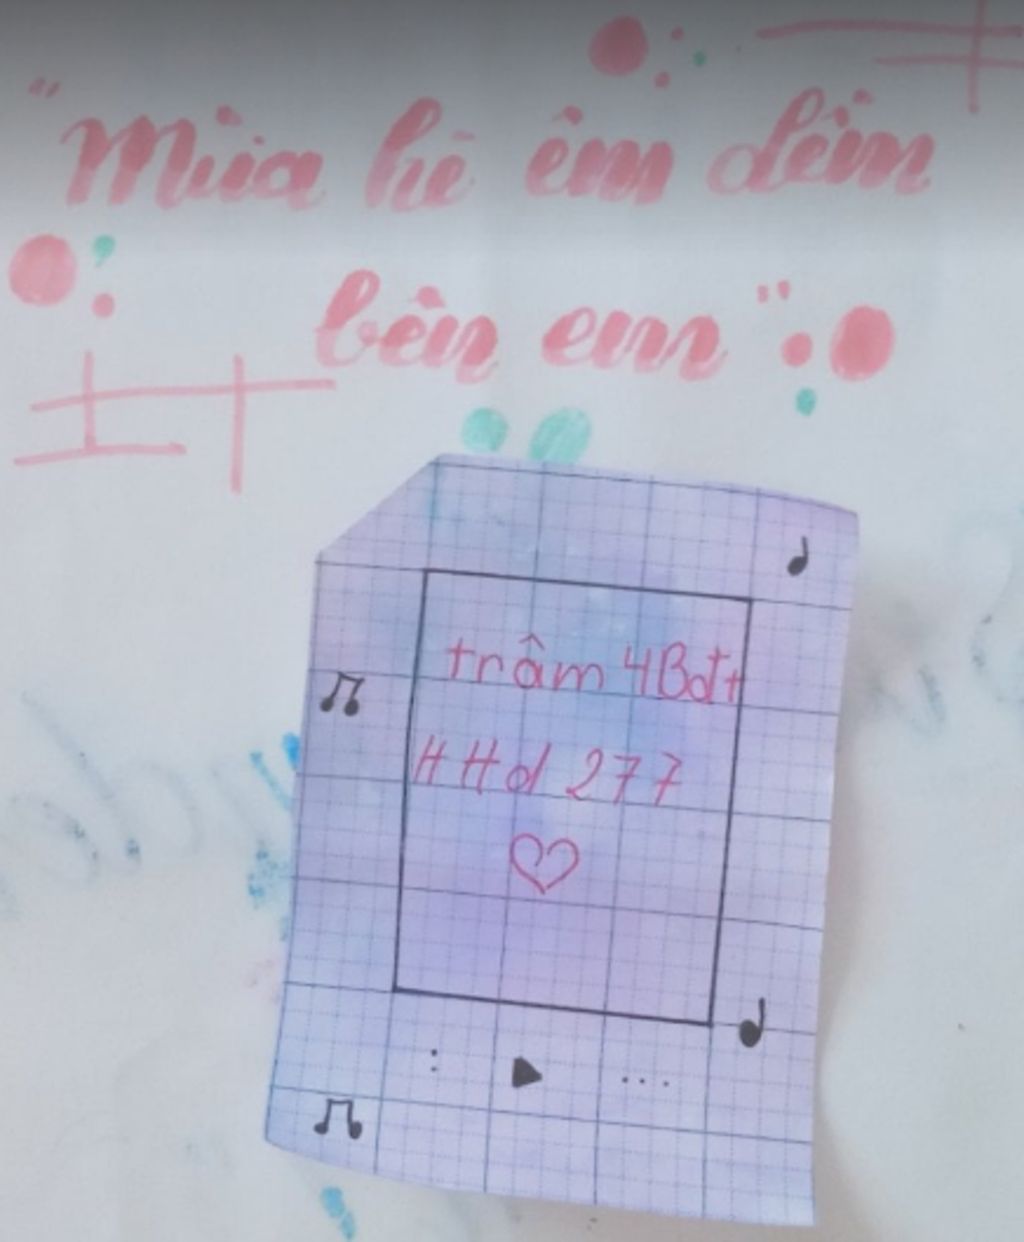 "Mùa hè êm đềm
bên em"
trâm 4Bdt
HHd 277